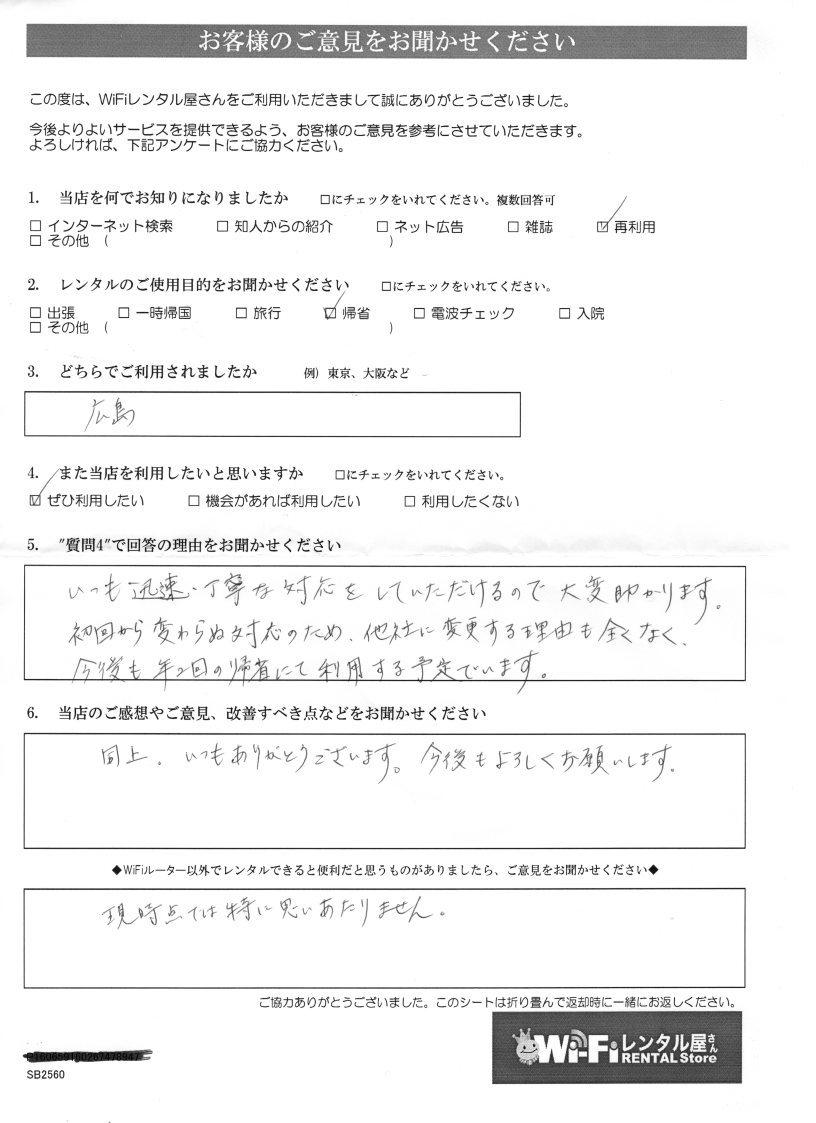 お客様のご意見をお聞かせください
この度は、WiFiレンタル屋さんをご利用いただきまして誠にありがとうございました。
今後よりよいサービスを提供できるよう、お客様のご意見を参考にさせていただきます。
よろしければ、下記アンケートにご協力ください。
1. 当店を何でお知りになりましたか □にチェックをいれてください。複数回答可
□ インターネット検索 □ 知人からの紹介 □ ネット広告 □ 雑誌 ☑ 再利用
□ その他 ( )
2. レンタルのご使用目的をお聞かせください □にチェックをいれてください。
□ 出張 □ 一時帰国 □ 旅行 ☑ 帰省 □ 電波チェック □ 入院
□ その他 ( )
3. どちらでご利用されましたか 例) 東京、大阪など
広島
4. また当店を利用したいと思いますか □にチェックをいれてください。
☑ ぜひ利用したい □ 機会があれば利用したい □ 利用したくない
5. "質問4"で回答の理由をお聞かせください
いつも迅速・丁寧な対応をしていただけるので大変助かります。
初回から変わらぬ対応のため、他社に変更する理由も全くなく、
今後も年2回の帰省にて利用する予定でいます。
6. 当店のご感想やご意見、改善すべき点などをお聞かせください
同上。いつもありがとうございます。今後もよろしくお願いします。
◆WiFiルーター以外でレンタルできると便利だと思うものがありましたら、ご意見をお聞かせください◆
現時点では特に思いあたりません。
ご協力ありがとうございました。このシートは折り畳んで返却時に一緒にお返しください。
Wi-Fiレンタル屋さん
RENTAL Store
SB2560